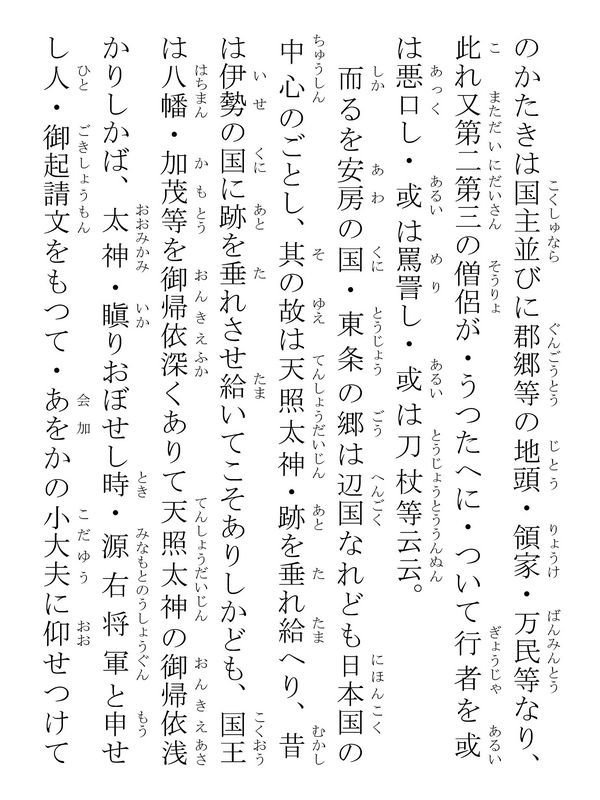 のかたきは国主並びに郡郷等の地頭・領家・万民等なり、
此れ又第二第三の僧侶が・うつたへに・ついて行者を或
は悪口し・或は罵詈し・或は刀杖等云云。
而るを安房の国・東条の郷は辺国なれども日本国の
中心のごとし、其の故は天照太神・跡を垂れ給へり、昔
は伊勢の国に跡を垂れさせ給いてこそありしかども、国王
は八幡・加茂等を御帰依深くありて天照太神の御帰依浅
かりしかば、太神・瞋りおぼせし時・源右将軍と申せ
し人・御起請文をもつて・あをかの小大夫に仰せつけて